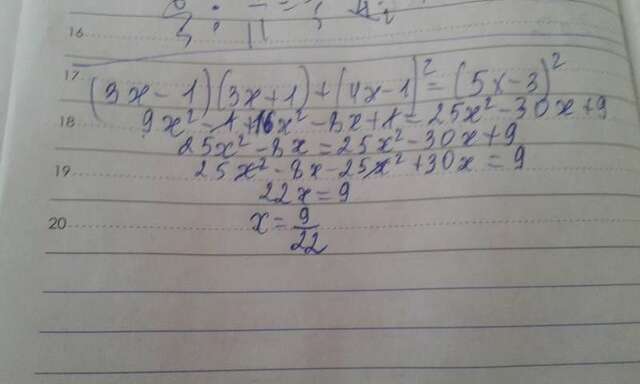 16
17
(3x-1)(3x+1)+(4x-1)²=(5x-3)²
18
9x²-1+16x²-8x+1=25x²-30x+9
25x²-8x=25x²-30x+9
19
25x²-8x-25x²+30x=9
22x=9
20
x=9/22